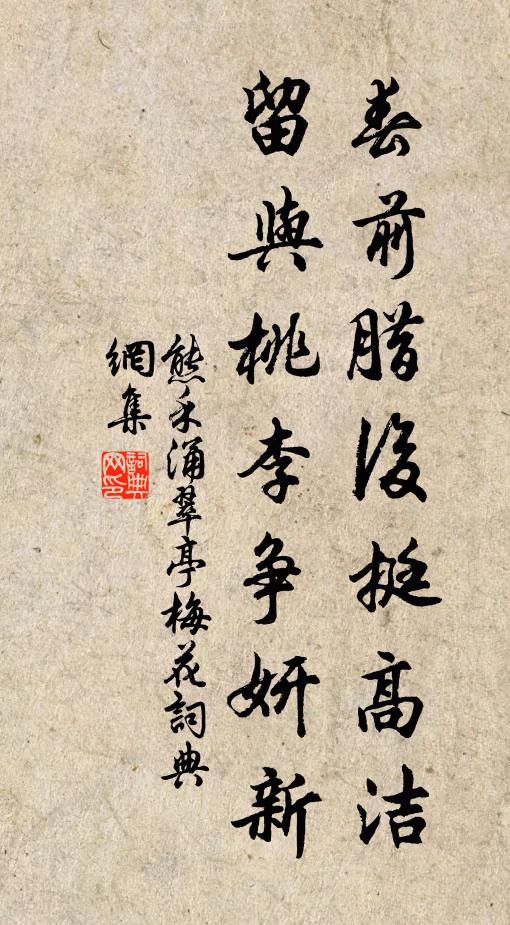 春前腊後挺高洁
留與桃李争妍新
熊禾涌翠亭梅花詞典
網集
詞典
网印